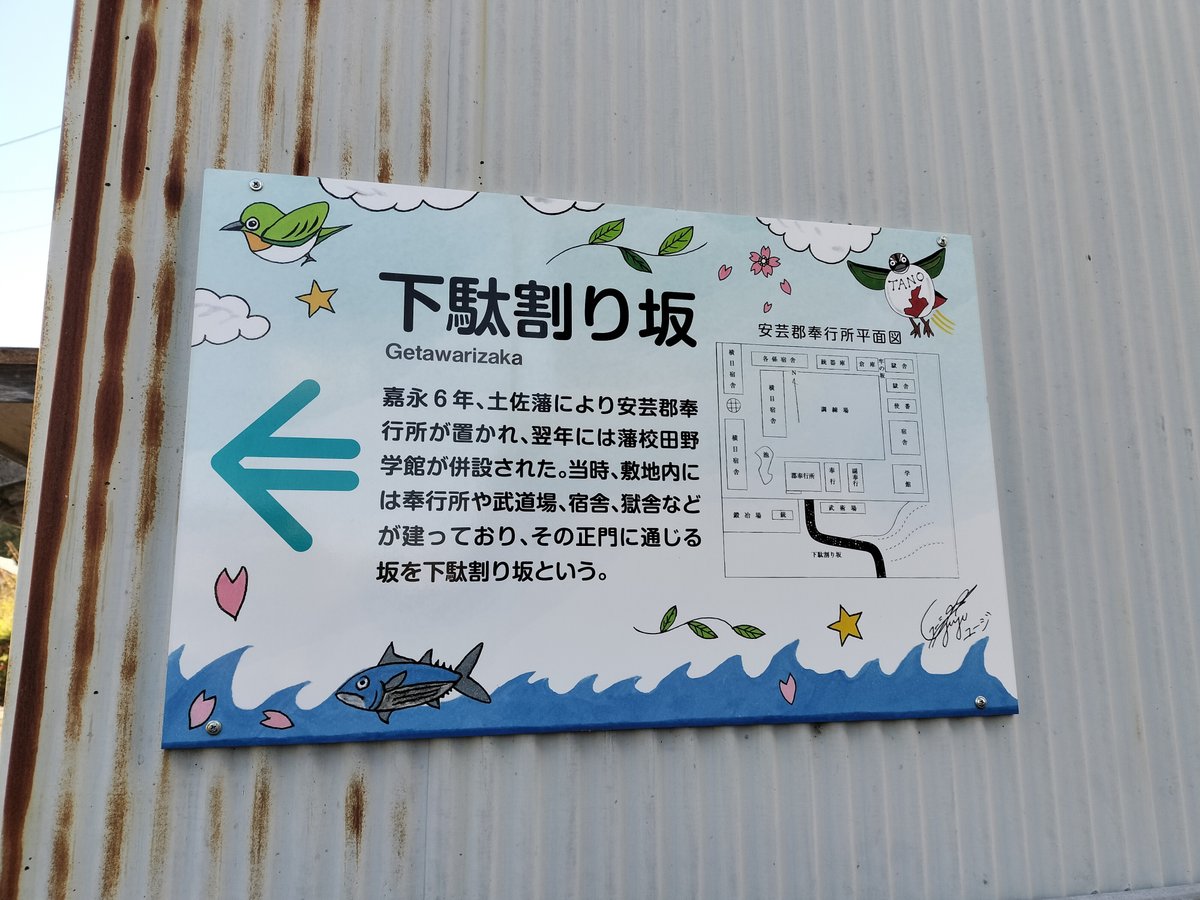 下駄割り坂
Getawarizaka
嘉永6年、土佐藩により安芸郡奉
行所が置かれ、翌年には藩校田野
学館が併設された。当時、敷地内に
は奉行所や武道場、宿舎、獄舎など
が建っており、その正門に通じる
坂を下駄割り坂という。
TANO
安芸郡奉行所平面図
横目宿舎
各係宿舎
銃器庫
倉庫
獄舎
獄舎
横目宿舎
N
調練場
使番
宿舎
横目宿舎
池
郡奉行所
奉行
副奉行
学館
鍛冶場
銃
武術場
下駄割り坂
ユージ